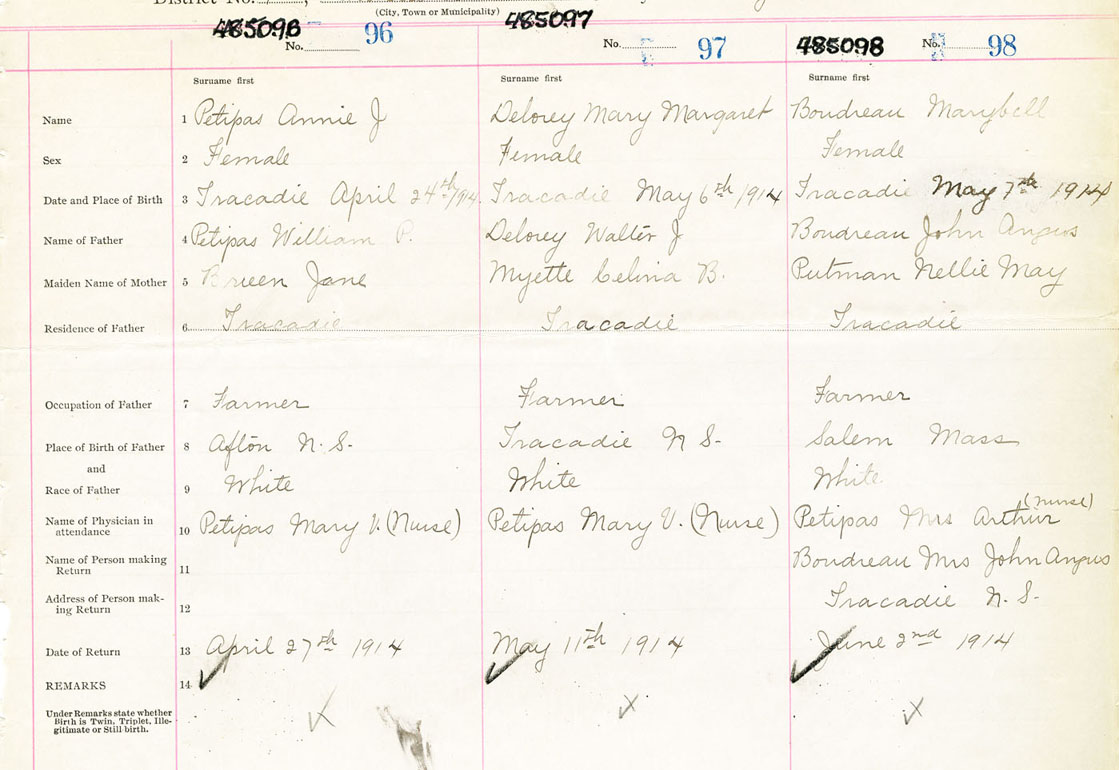 District No.
(City, Town or Municipality)
485096 No. 96 485097 No. 97 485098 No. 98
Surname first Surname first Surname first
Name 1 Petipas Annie J Delorey Mary Margaret Boudreau Marybell
Sex 2 Female Female Female
Date and Place of Birth 3 Tracadie April 24th/1914. Tracadie May 6th 1914 Tracadie May 7th 1914
Name of Father 4 Petipas William P. Delorey Walter J Boudreau John Angus
Maiden Name of Mother 5 Brueen Jane Myette Celina B. Putman Nellie May
Residence of Father 6 Tracadie Tracadie Tracadie
Occupation of Father 7 Farmer Farmer Farmer
Place of Birth of Father 8 Afton N. S. Tracadie N S. Salem Mass
and
Race of Father 9 White White White
(Nurse)
Name of Physician in attendance 10 Petipas Mary V. (Nurse) Petipas Mary V. (Nurse) Petipas Mrs Arthur
Name of Person making Return 11 Boudreau Mrs John Angus
Address of Person mak-
ing Return 12 Tracadie N. S.
Date of Return 13 April 27th 1914 May 11th 1914 June 2nd 1914
REMARKS 14
Under Remarks state whether
Birth is Twin, Triplet, Ille-
gitimate or Still-birth.